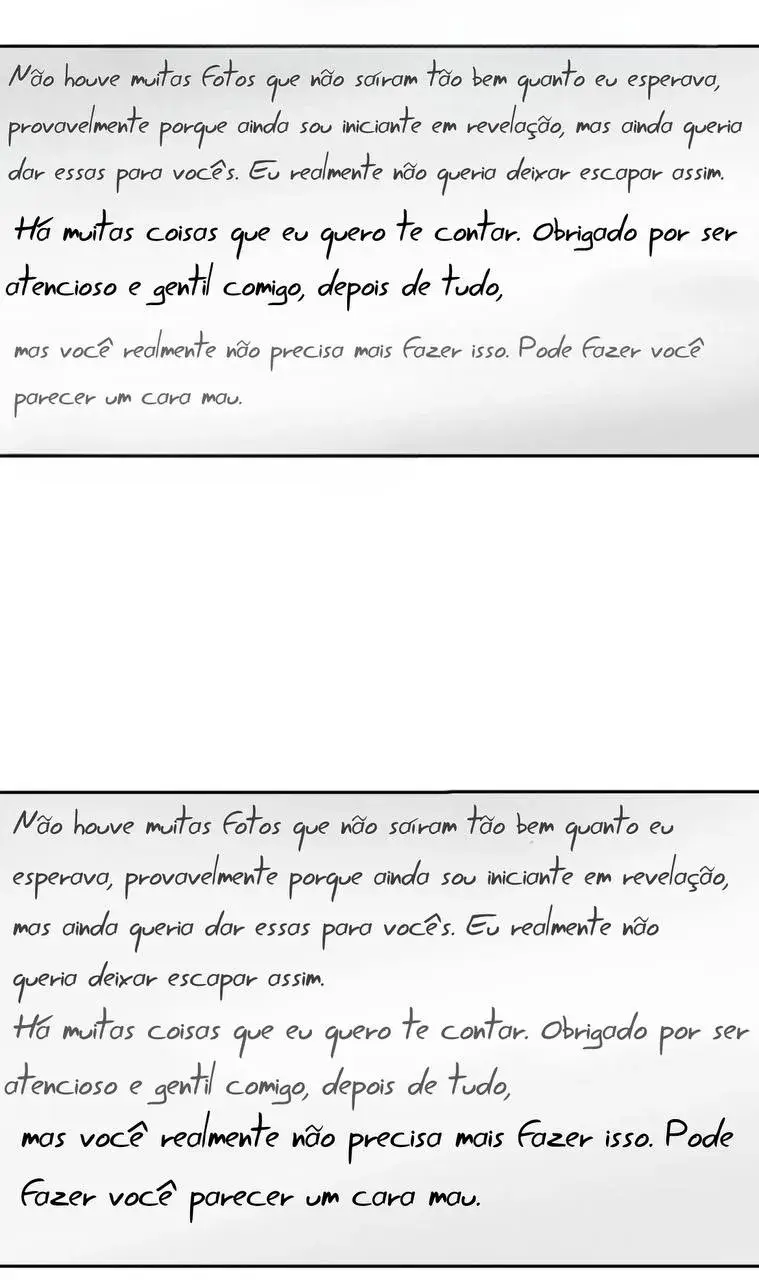 Não houve muitas fotos que não saíram tão bem quanto eu esperava,
provavelmente porque ainda sou iniciante em revelação, mas ainda queria
dar essas para vocês. Eu realmente não queria deixar escapar assim.
Há muitas coisas que eu quero te contar. Obrigado por ser
atencioso e gentil comigo, depois de tudo,
mas você realmente não precisa mais fazer isso. Pode fazer você
parecer um cara mau.
Não houve muitas fotos que não saíram tão bem quanto eu
esperava, provavelmente porque ainda sou iniciante em revelação,
mas ainda queria dar essas para vocês. Eu realmente não
queria deixar escapar assim.
Há muitas coisas que eu quero te contar. Obrigado por ser
atencioso e gentil comigo, depois de tudo,
mas você realmente não precisa mais fazer isso. Pode
fazer você parecer um cara mau.